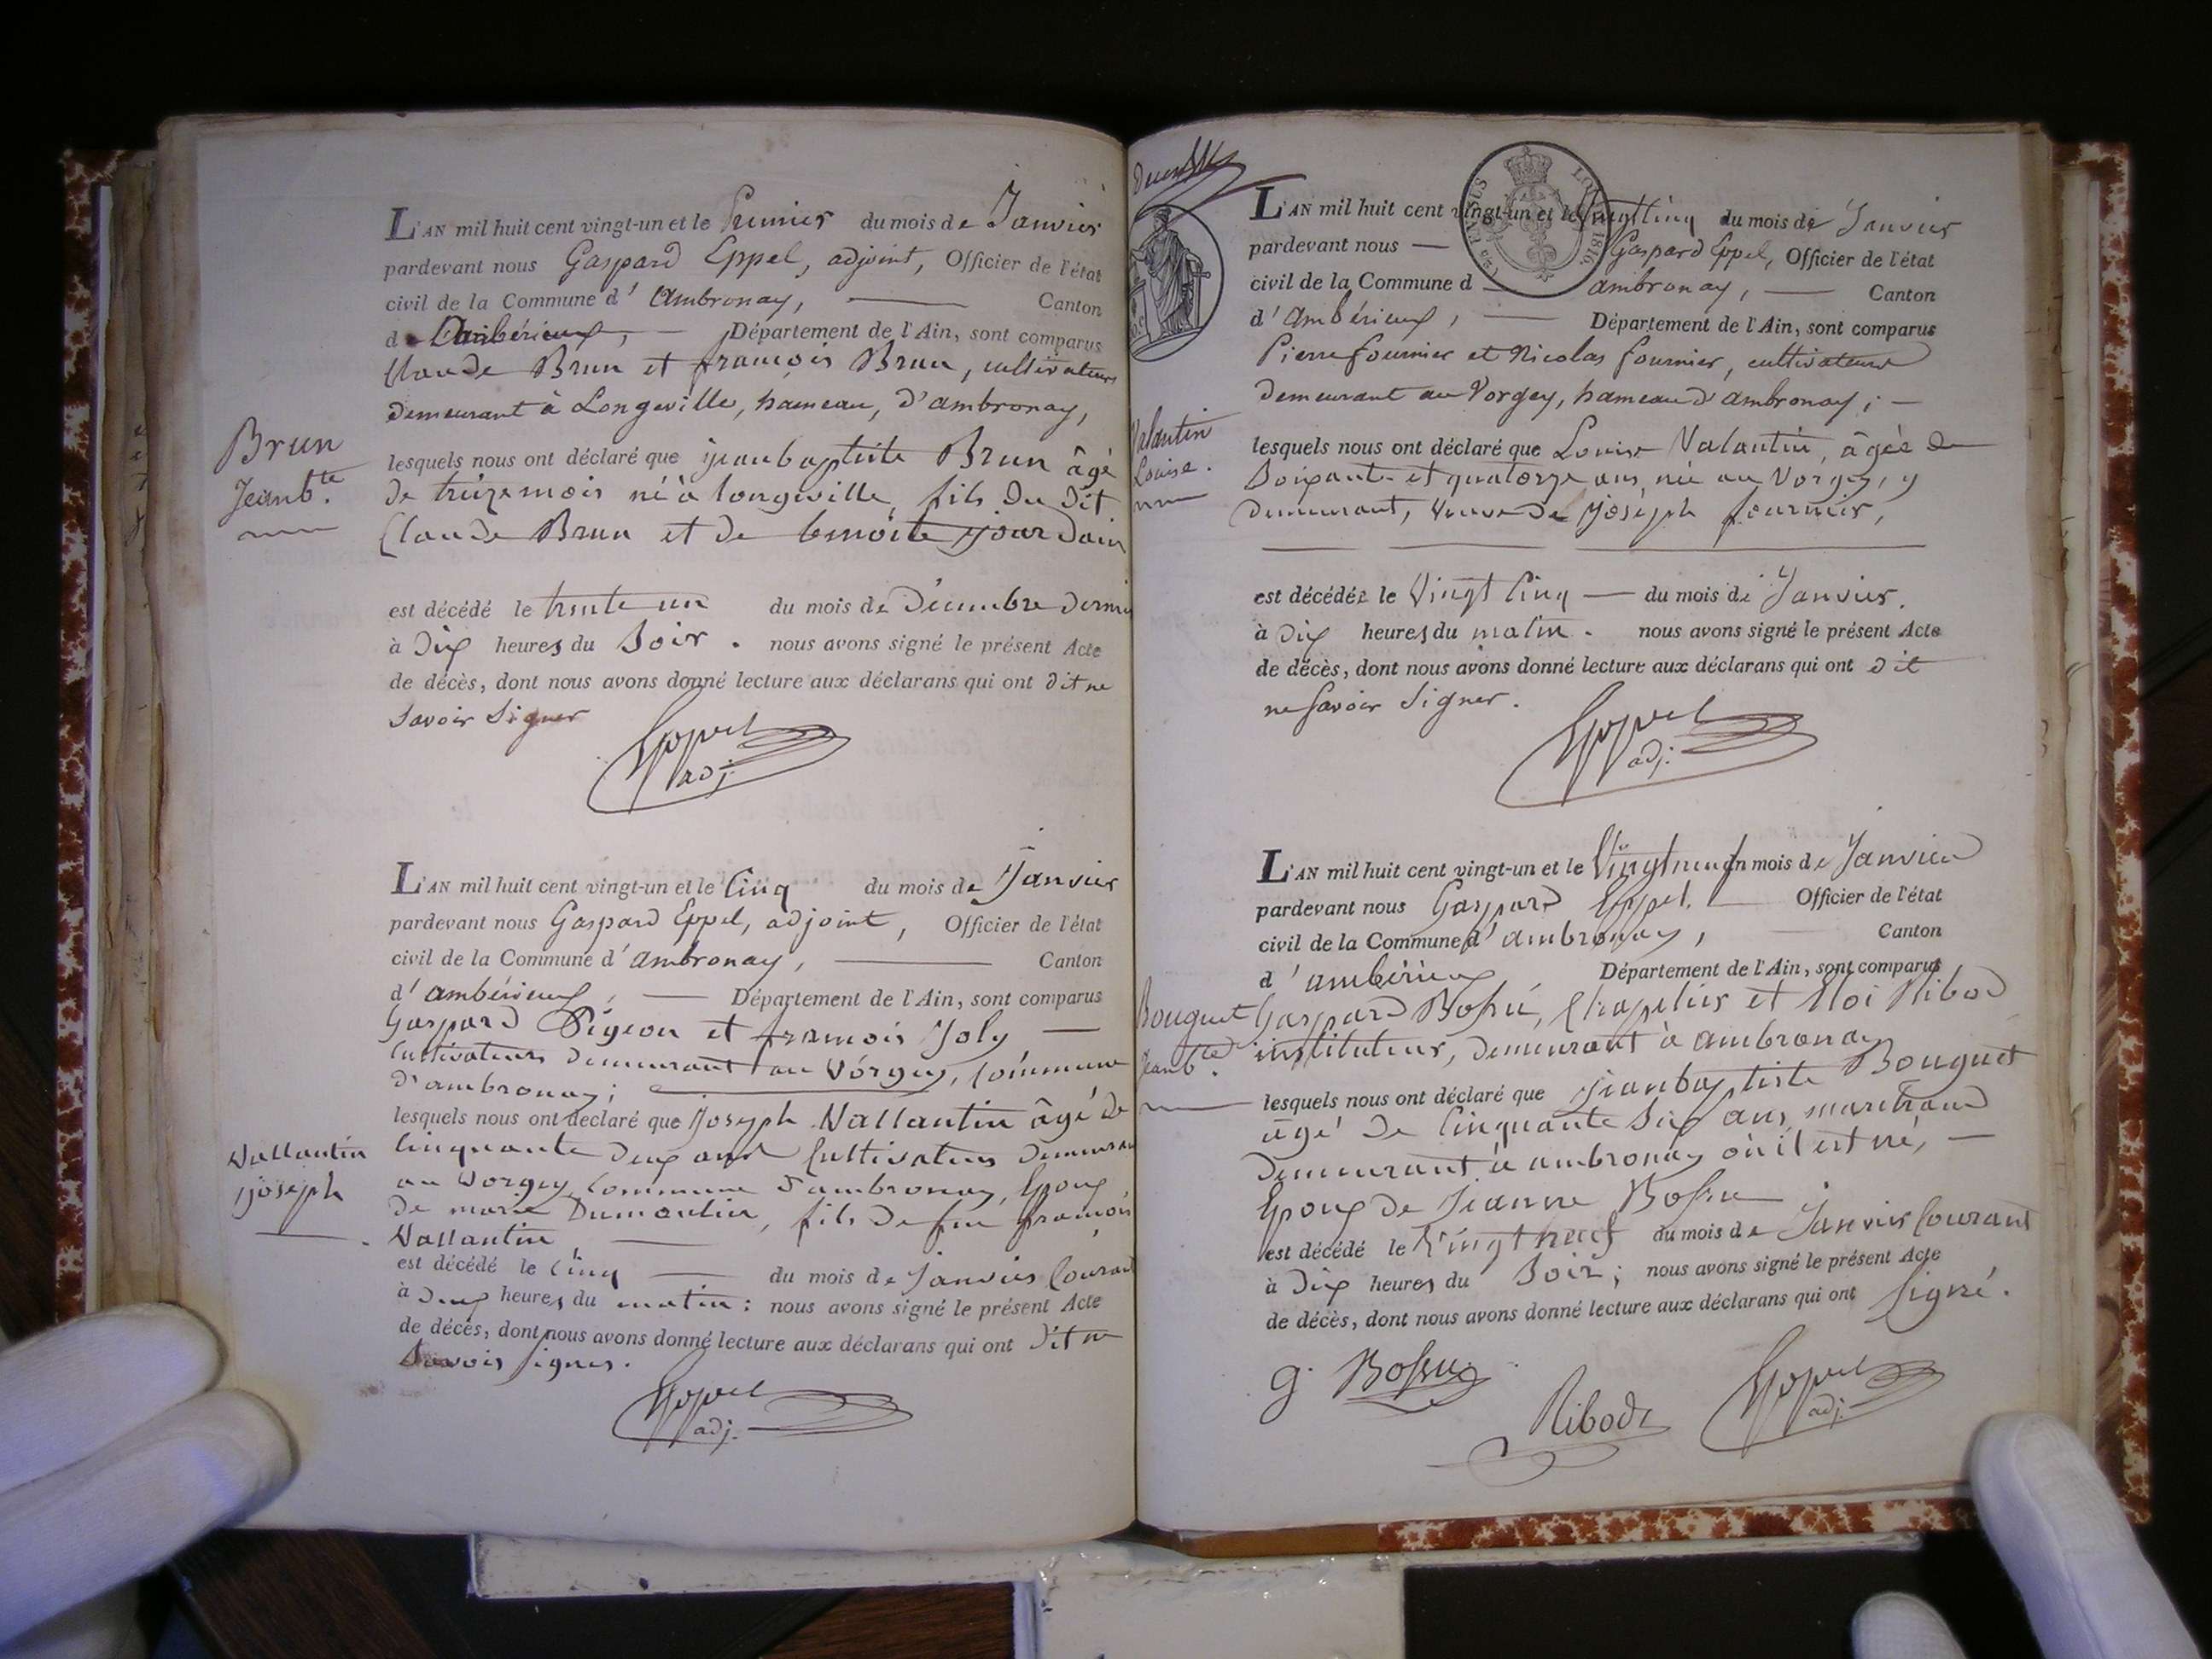 L'AN mil huit cent vingt-un et le Premier du mois de Janvier
pardevant nous Gaspard Eppel, adjoint, Officier de l'état
civil de la Commune d'Ambronay, Canton
d'Ambérieux, Département de l'Ain, sont comparus
Claude Brun et françois Brun, cultivateurs
demeurant à Longeville, hameau, d'ambronay,
Brun
Jeanbte.
lesquels nous ont déclaré que jeanbaptiste Brun âgé
de treize mois né à longeville, fils du dit
Claude Brun et de benoite jourdain
est décédé le trente un du mois de Décembre dernier
à Dix heures du Soir. nous avons signé le présent Acte
de décès, dont nous avons donné lecture aux déclarans qui ont dit ne
Savoir Signer
Eppel
adj.
L'AN mil huit cent vingt-un et le Cinq du mois de Janvier
pardevant nous Gaspard Eppel, adjoint, Officier de l'état
civil de la Commune d'ambronay, Canton
d'ambérieux, Département de l'Ain, sont comparus
Gaspard Pigeon et françois Joly
Cultivateurs demeurant au Vorgey, Commune
d'ambronay;
lesquels nous ont déclaré que Joseph Vallantin âgé de
Vallantin
joseph
Cinquante deux ans Cultivateur demeurant
au Vorgey Commune d'ambronay, Epoux
de marie Dumoulin, fils de feu françois
Vallantin
est décédé le Cinq du mois de Janvier Courant
à Deux heures du matin: nous avons signé le présent Acte
de décès, dont nous avons donné lecture aux déclarans qui ont Dit ne
Savoir Signer.
Eppel
adj.
L'AN mil huit cent vingt-un et le Vingt Cinq du mois de Janvier
pardevant nous Gaspard Eppel, Officier de l'état
civil de la Commune d ambronay, Canton
d'Ambérieux, Département de l'Ain, sont comparus
Pierre fournier et Nicolas fournier, cultivateurs
demeurant au Vorgey, hameau d'ambronay;
Valantin
Louise.
lesquels nous ont déclaré que Louise Valantin, âgée de
Soixante et quatorze ans, née au Vorgey, y
demeurant, Veuve de Joseph fournier,
est décédée le Vingt Cinq du mois de Janvier.
à Dix heures du matin. nous avons signé le présent Acte
de décès, dont nous avons donné lecture aux déclarans qui ont dit
ne Savoir Signer.
Eppel
adj.
L'AN mil huit cent vingt-un et le Vingt neuf du mois de Janvier
pardevant nous Gaspard Eppel. Officier de l'état
civil de la Commune d'ambronay, Canton
d'ambérieux Département de l'Ain, sont comparus
Bouguet
Jeanbte.
Gaspard Bossu, Chapelier et Eloi Ribod
instituteur, demeurant à ambronay
lesquels nous ont déclaré que jeanbaptiste Bouguet
âgé de Cinquante Six ans, marchand
Demeurant à ambronay où il est né,
Epoux de Jeanne Bossu
est décédé le Vingt neuf du mois de Janvier Courant
à Dix heures du Soir; nous avons signé le présent Acte
de décès, dont nous avons donné lecture aux déclarans qui ont Signé.
g. Bossu
Ribod
Eppel
adj.